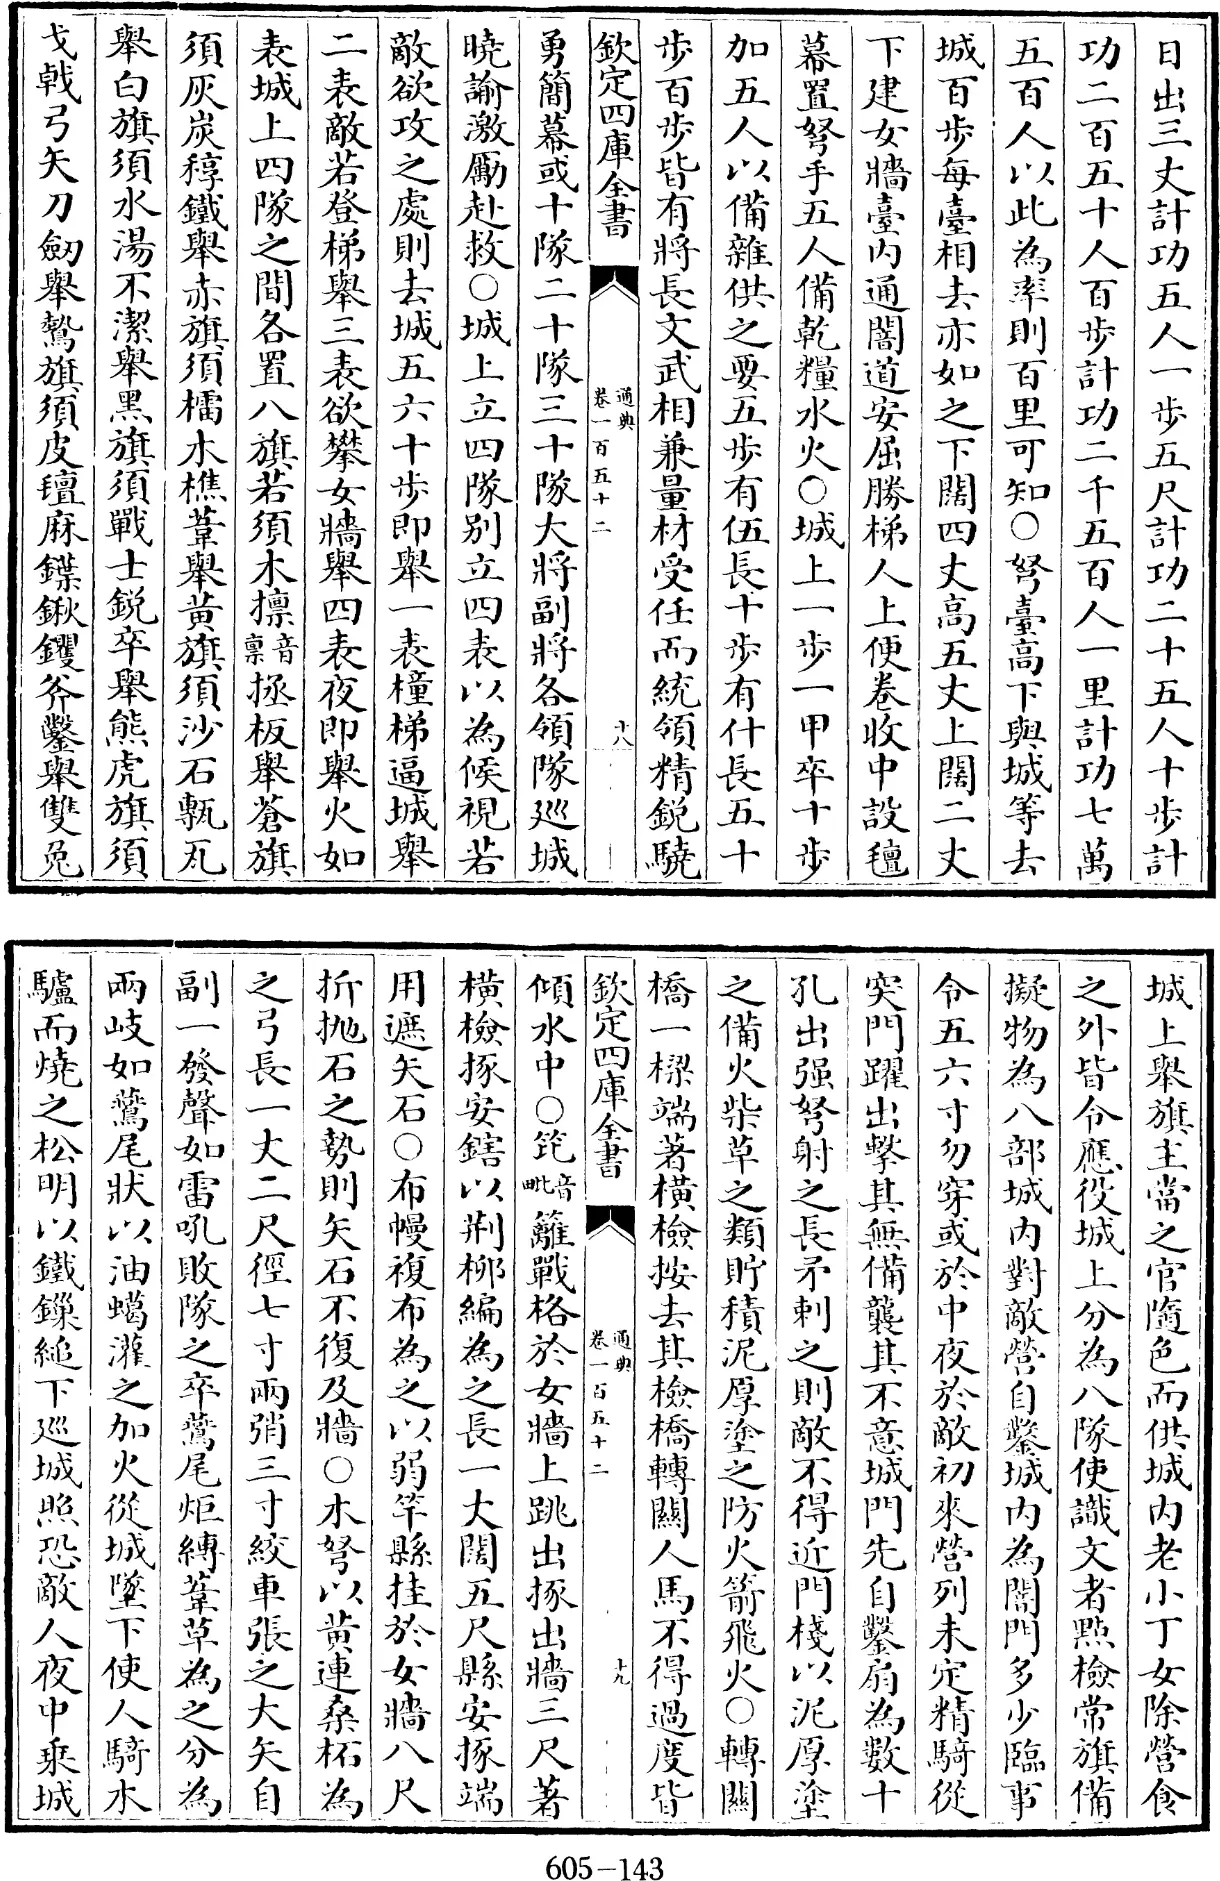 日出三丈計功五人一步五尺計功二十五人十步計
功二百五十人百步計功二千五百人一里計功七萬
五百人以此為率則百里可知○弩臺高下與城等去
城百步每臺相去亦如之下闊四丈高五丈上闊二丈
下建女牆臺内通闇道安屈勝梯人上便卷收中設氊
幕置弩手五人備乾糧水火○城上一步一甲卒十步
加五人以備雜供之要五步有伍長十步有什長五十
步百步皆有將長文武相兼量材受任而統領精鋭驍
欽定四庫全書
通典
卷一百五十二
十八
勇簡募或十隊二十隊三十隊大將副將各領隊廵城
曉諭激勵赴救○城上立四隊别立四表以為候視若
敵欲攻之處則去城五六十步即舉一表橦梯逼城舉
二表敵若登梯舉三表欲攀女牆舉四表夜即舉火如
表城上四隊之間各置八旗若須木檁音稟拯板舉蒼旗
須灰炭稕鐵舉赤旗須檑木樵葦舉黄旗須沙石甎瓦
舉白旗須水湯不潔舉黑旗須戰士鋭卒舉熊虎旗須
戈戟弓矢刀劒舉鷙旗須皮氊麻鍱鍬钁斧鑿舉雙兎
城上舉旗主當之官隨色而供城内老小丁女除營食
之外皆令應役城上分為八隊使識文者㸃檢常旗備
擬物為八部城内對敵營自鑿城内為闇門多少臨事
令五六寸勿穿或於中夜於敵初來營列未定精騎從
突門躍出擊其無備襲其不意城門先自鑿扇為數十
孔出强弩射之長矛刺之則敵不得近門棧以泥厚塗
之備火柴草之類貯積泥厚塗之防火箭飛火○轉關
橋一樑端著横檢按去其檢橋轉關人馬不得過度皆
欽定四庫全書
通典
卷一百五十二
十九
傾水中○笓音毗籬戰格於女牆上跳出椓出牆三尺著
横檢椓安鎋以荆柳編為之長一大闊五尺縣安椓端
用遮矢石○布幔複布為之以弱竿縣挂於女牆八尺
折抛石之勢則矢石不復及牆○木弩以黄連桑柘為
之弓長一丈二尺徑七寸兩弰三寸絞車張之大矢自
副一發聲如雷吼敗隊之卒鷰尾炬縳葦草為之分為
兩岐如鷰尾狀以油蠟灌之加火從城墜下使人騎木
驢而燒之松明以鐵鏁縋下廵城照恐敵人夜中乘城
605-143